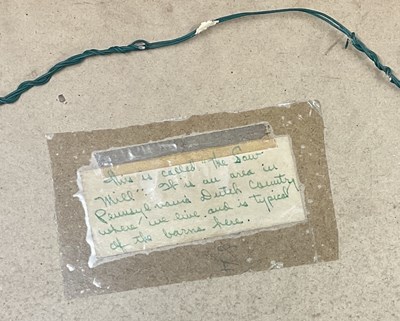 This is called "The Saw
Mill". It is an area in
Pennsylvania Dutch Country
where we live and is typical
of the barns here.